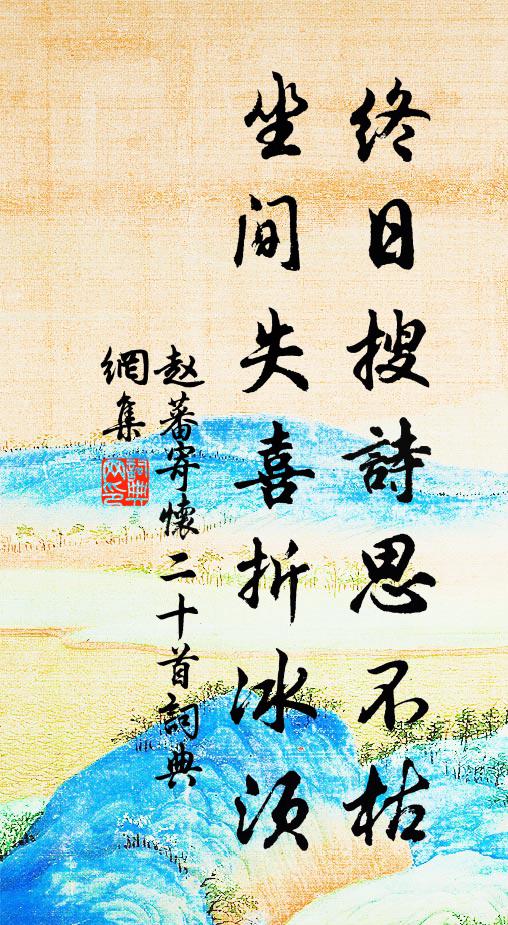 終日搜詩思不枯
坐间失喜折冰须
赵蕃寄懷二十首詞典
網集
詞典